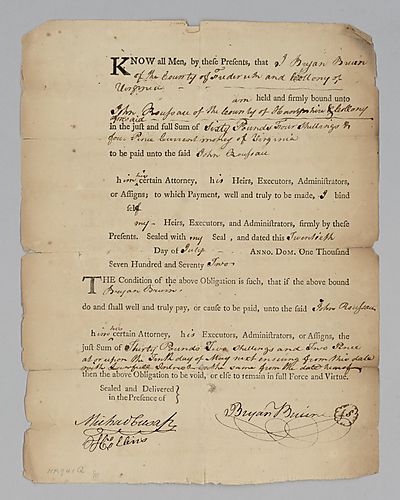 KNOW all Men, by these Presents, that I Bryan Bruin
of the County of Frederick and Collony of
Virginia
am held and firmly bound unto
John Rousseau of the County of Hampshire & Collony
forsaid
in the just and full Sum of Sixty Pounds Four Shillings &
four Pence Current money of Virginia
to be paid unto the said John Rousseau
him his certain Attorney, his Heirs, Executors, Administrators,
or Assigns; to which Payment, well and truly to be made, I bind
self
my Heirs, Executors, and Administrators, firmly by these
Presents. Sealed with my Seal, and dated this Twentieth
Day of July ANNO. DOM. One Thousand
Seven Hundred and Seventy Two
THE Condition of the above Obligation is such, that if the above bound
Bryan Bruin
do and shall well and truly pay, or cause to be paid, unto the said John Rousseau
him his certain Attorney, his Executors, Administrators, or Assigns, the
just Sum of Thirty Pounds Two Shillings and Two Pence
at or upon the Tenth day of May next ensuing from this date
with Lawfull Interest on the same from the date hereof
then the above Obligation to be void, or else to remain in full Force and Virtue.
Sealed and Delivered
in the Presence of
Bryan Bruin